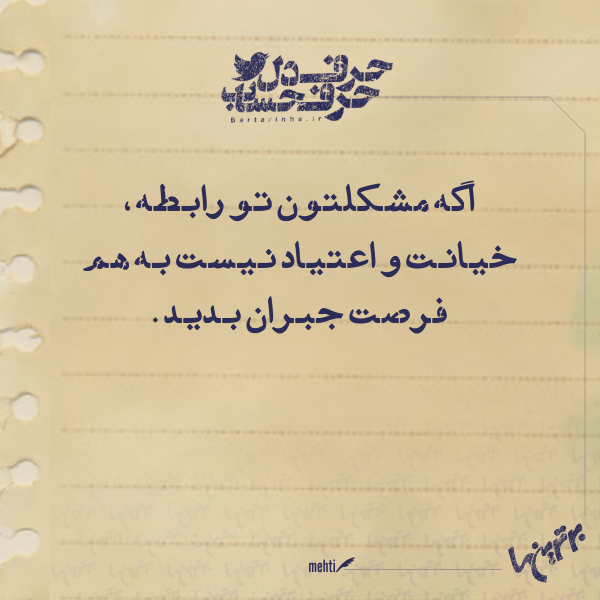 حرف دل
حرف حساب
Bartarinha.ir
اگه مشکلتون تو رابطه،
خیانت و اعتیاد نیست به هم
فرصت جبران بدید.
mehti
برترین‌ها